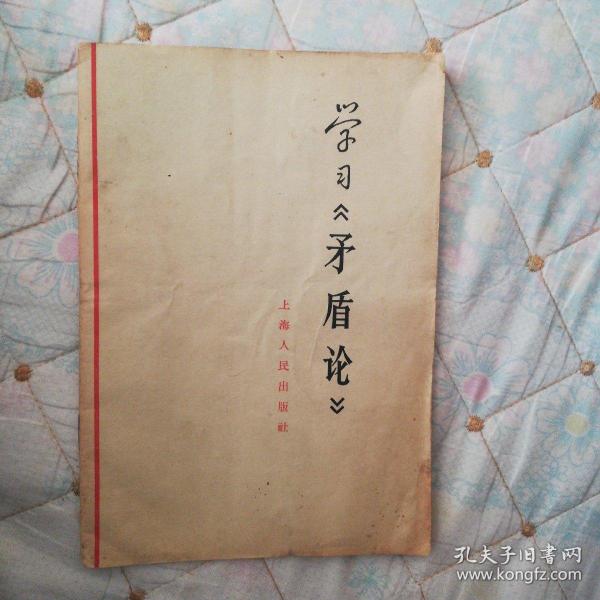 学习《矛盾论》
上海人民出版社
孔夫子旧书网
www.kongfz.com